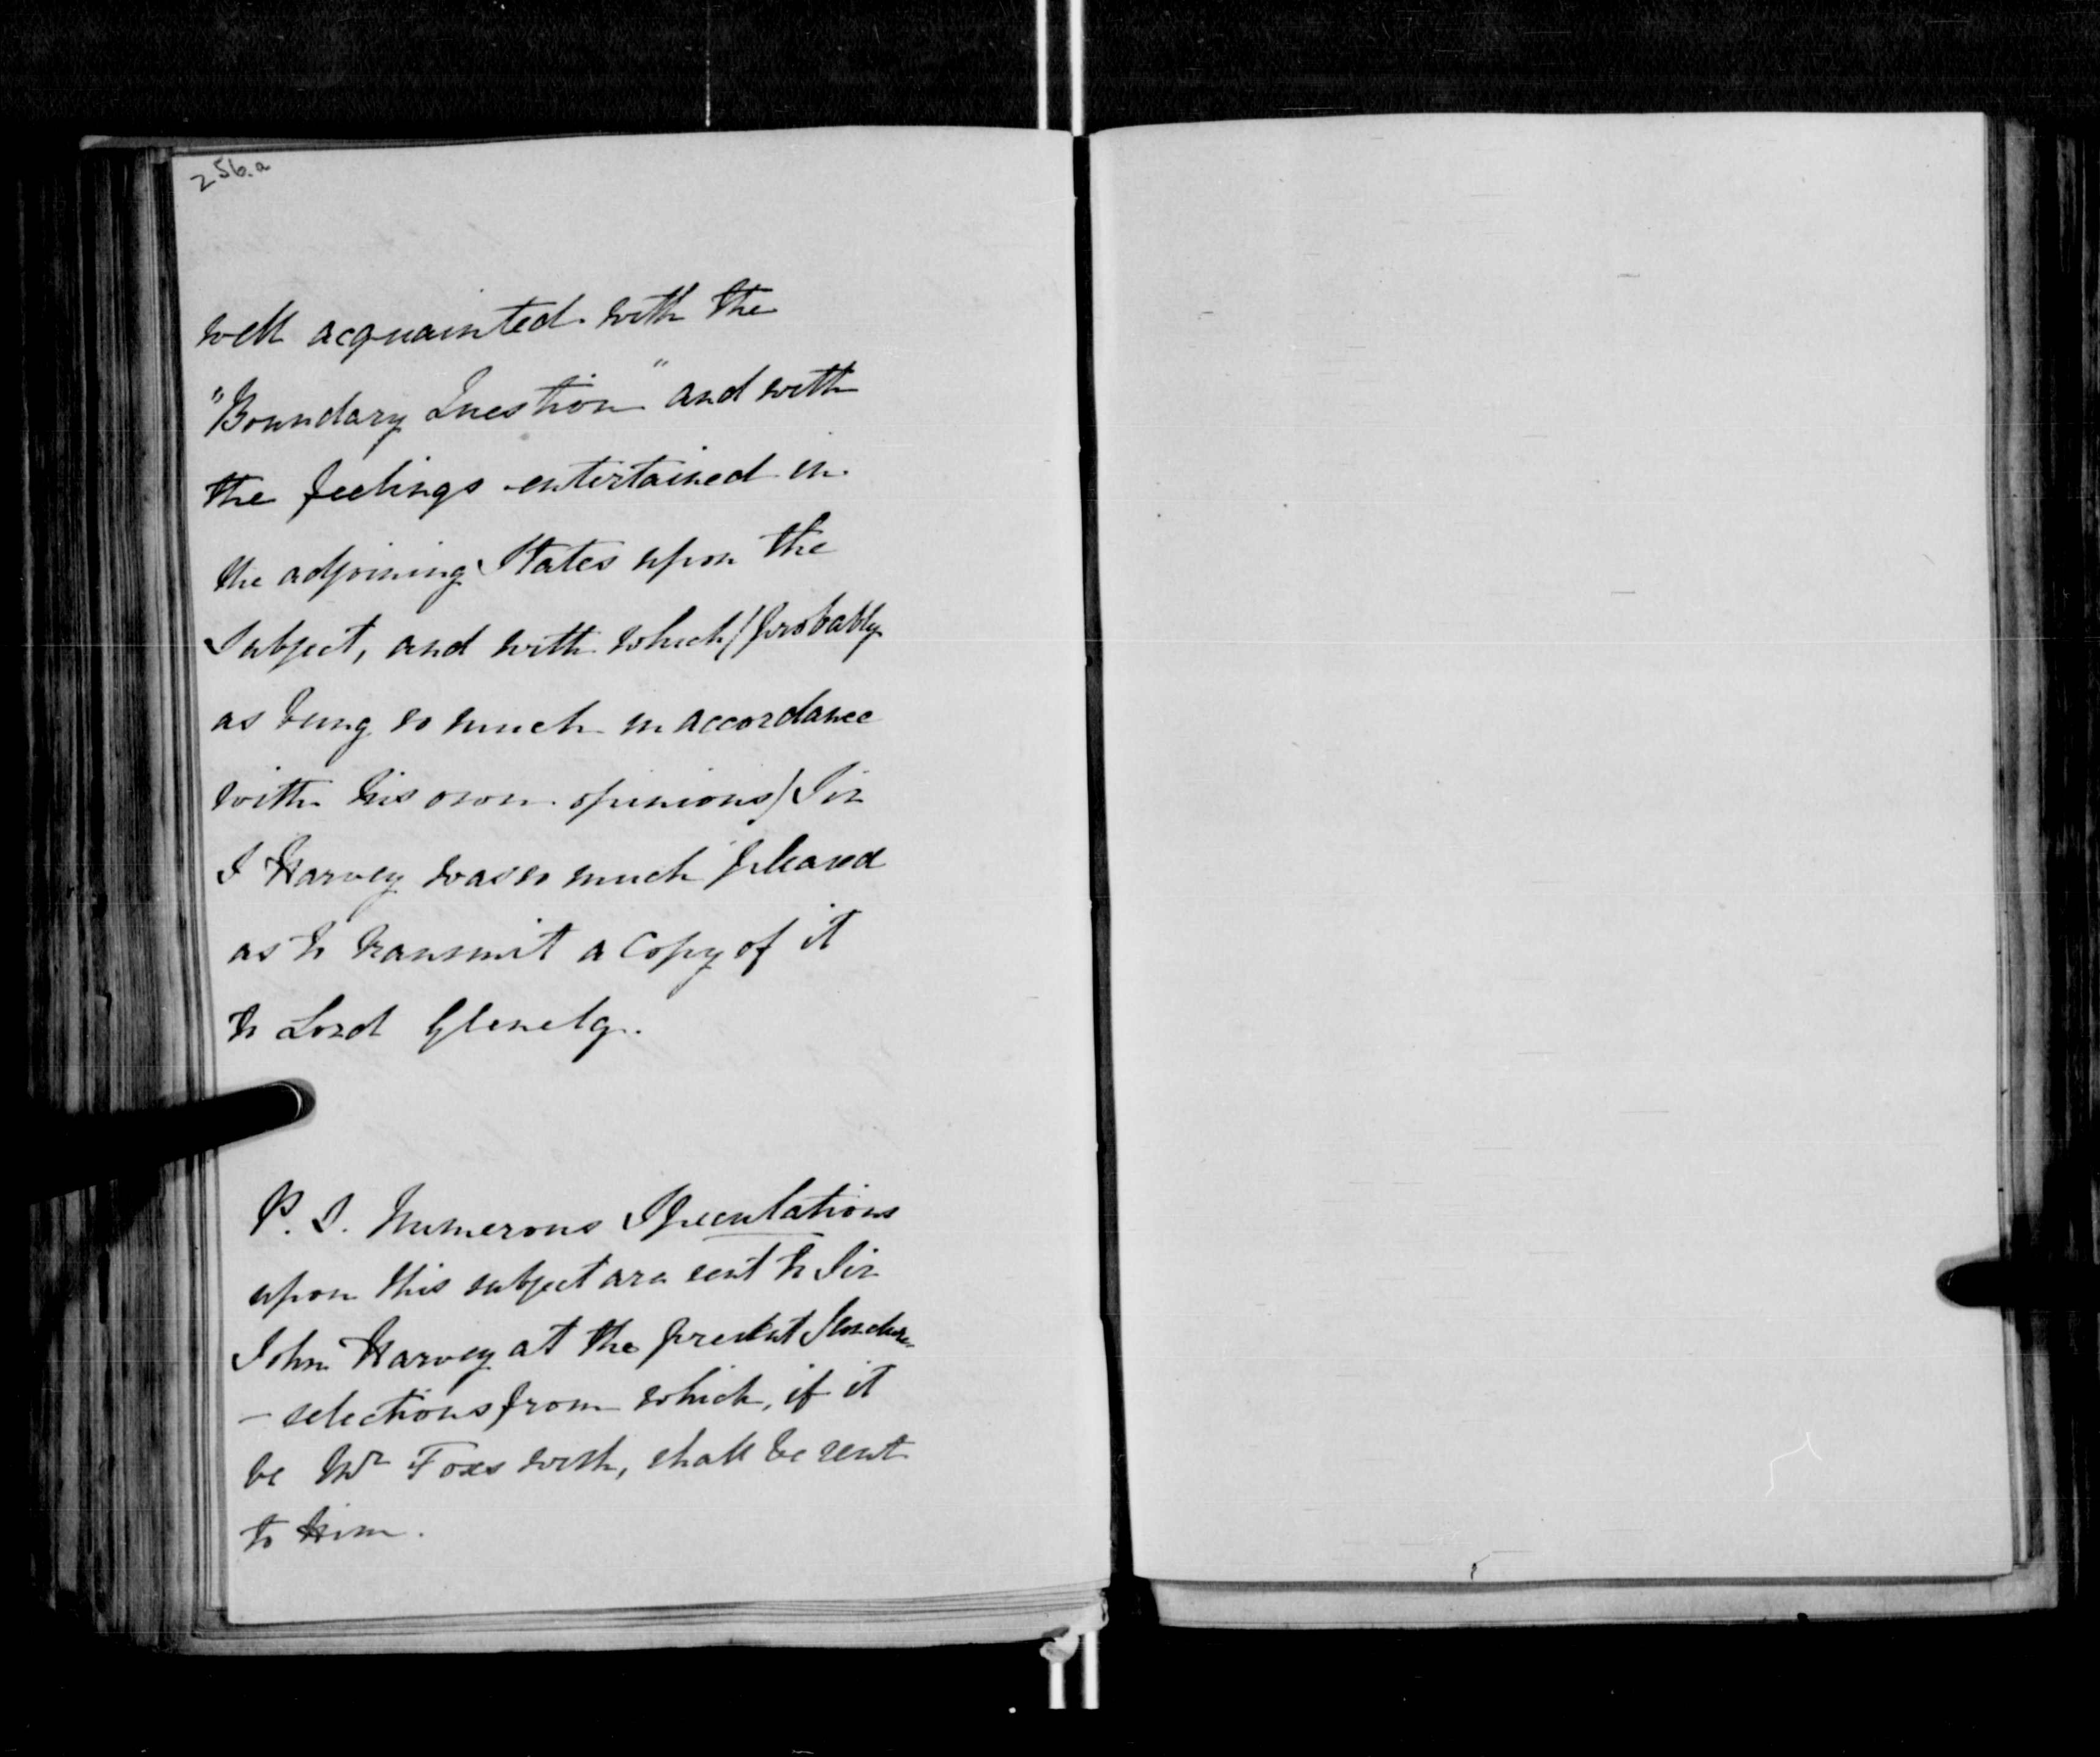 256.a
well acquainted with the
"Boundary Question" and with
the feelings entertained in
the adjoining States upon the
Subject, and with which (probably
as being so much in accordance
with his own opinions) Sir
J Harvey was so much pleased
as to transmit a Copy of it
to Lord Glenelg.
P. S. Numerous Speculations
upon this subject are sent to Sir
John Harvey at the present
– selections from which, if it
be Mr Foxs wish, shall be sent
to Him.